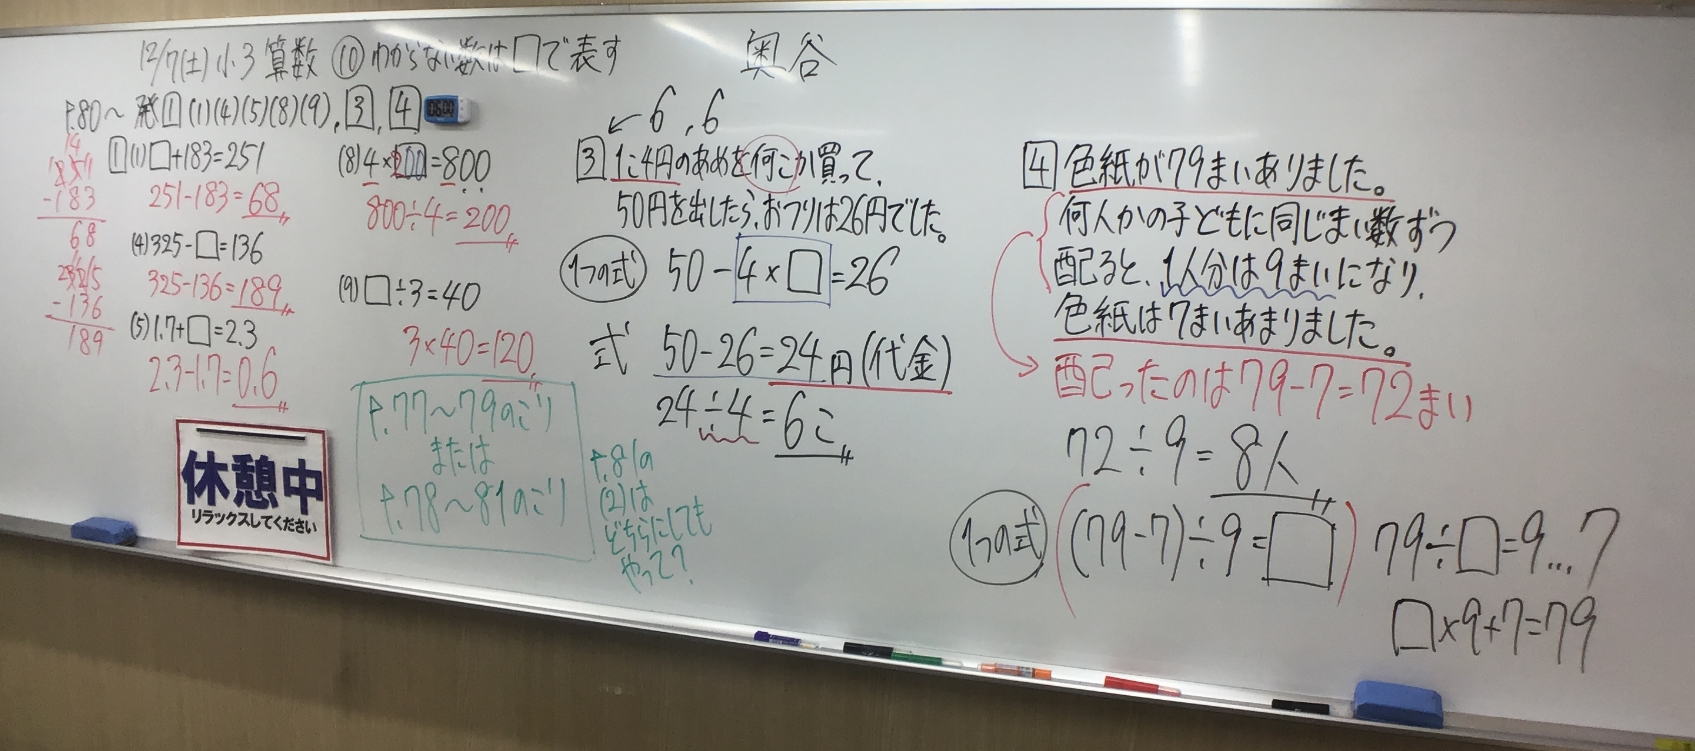 12/7(土) 小3 算数 ⑩ わからない数は□で表す
奥谷
P.80〜 発1 (1)(4)(5)(8)(9), 3, 4
1 (1) □+183=251
251-183=68
-183
68
(4) 325-□=136
325-136=189
-136
189
(5) 1.7+□=2.3
2.3-1.7=0.6
(8) 4×200=800
800÷4=200
(9) □÷3=40
3×40=120
P.77〜79のこり
または
P.78〜81のこり
P.81の
(2)は
どちらにしても
やって?
休憩中
リラックスしてください
6, 6
3 1こ4円のあめを何こか買って、
50円を出したら、おつりは26円でした。
1つの式 50-4×□=26
式 50-26=24円(代金)
24÷4=6こ
4 色紙が79まいありました。
何人かの子どもに同じまい数ずつ
配ると、1人分は9まいになり、
色紙は7まいあまりました。
配ったのは79-7=72まい
72÷9=8人
1つの式 (79-7)÷9=□
79÷□=9…7
□×9+7=79